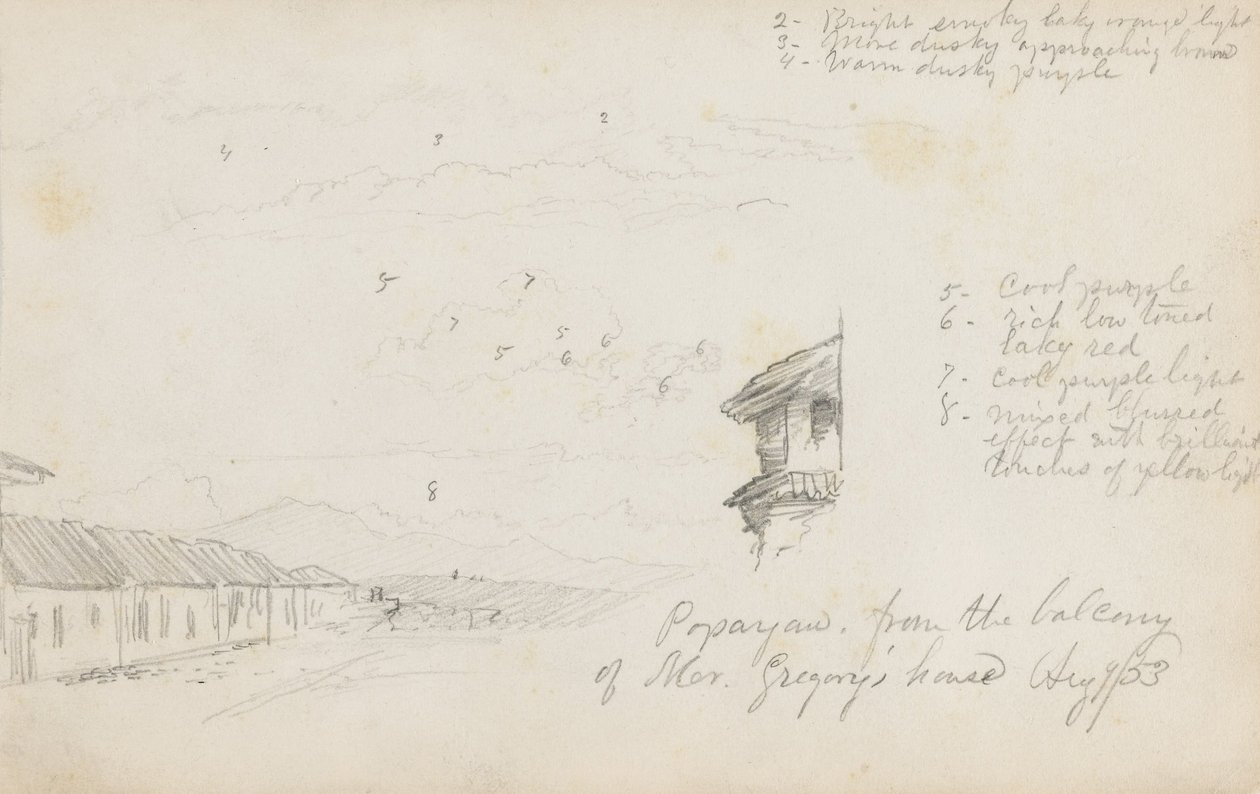 2- Bright smoky laky orange light
3- More dusky approaching brown
4- Warm dusky purple
4 3 2
5 7
7 5 6
5 6 6
6
5- Cool purple
6- rich low toned
laky red
7- cool purple light
8- mixed blurred
effect with brilliant
touches of yellow light
8
Popayan. from the balcony
of Mr. Gregory's house Aug/53